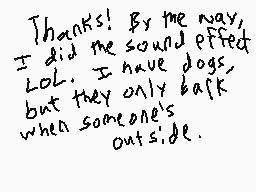 Thanks! By the way,
I did the sound effect
LOL. I have dogs,
but they only bark
when someone's
outside.